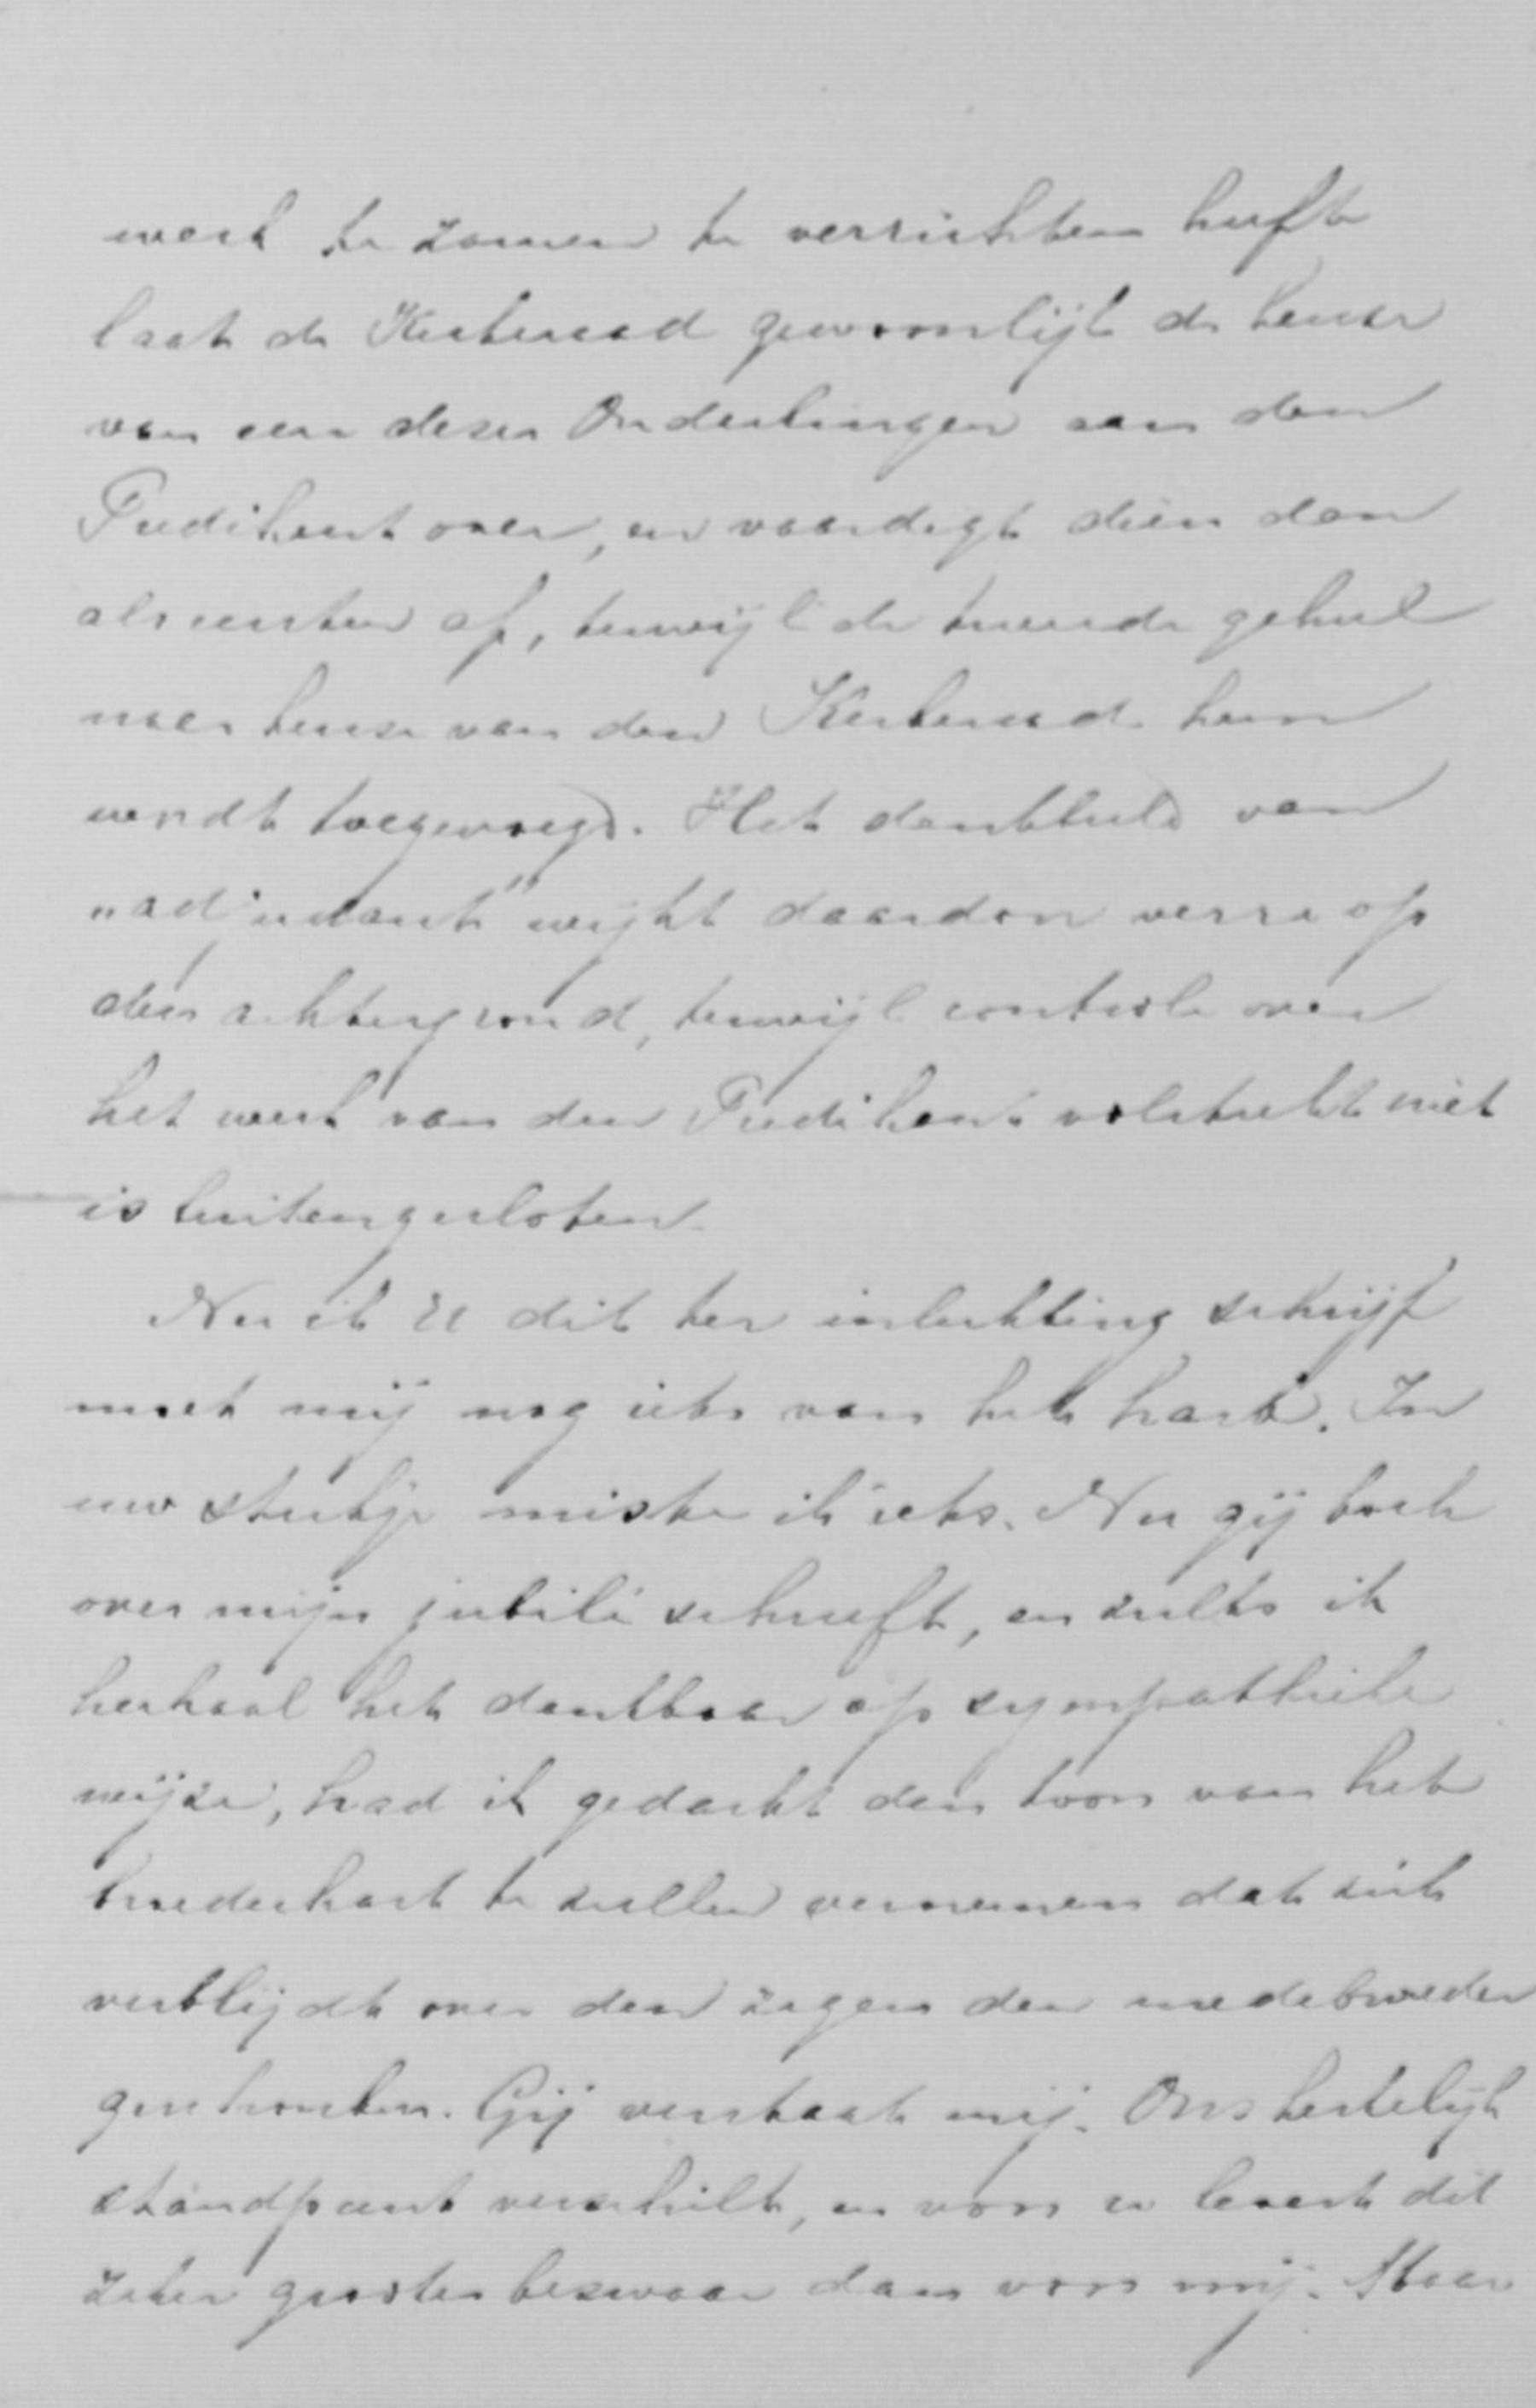 werk te zamen te verrichten heeft
laat de Kerkeraad gewoonlijk de keuze
van een dezer Onderlingen aan den
Predikant over, en vaardigt dien dan
als eersten af, terwijl de tweede geheel
naar keuze van den Kerkeraad hem
wordt toegevoegd. Het denkbeeld van
„adjudant" wijkt daardoor verre op
den achtergrond, terwijl controle over
het werk van den Predikant volstrekt niet
is buitengesloten.
Nu ik U dit ter inlichting schrijf
moet mij nog iets van het hart. In
uw stukje miste ik iets. Nu gij toch
over mijn jubilé schreeft, en zulks ik
herhaal het dankbaar op sympathieke
wijze, had ik gedacht den toon van het
broederhart te zullen vernemen dat zich
verblijdt over den zegen den medebroeder
geschonken. Gij verstaat mij. Ons kerkelijk
standpunt verschilt, en voor u levert dit
zeker grooter bezwaar dan voor mij. Maar